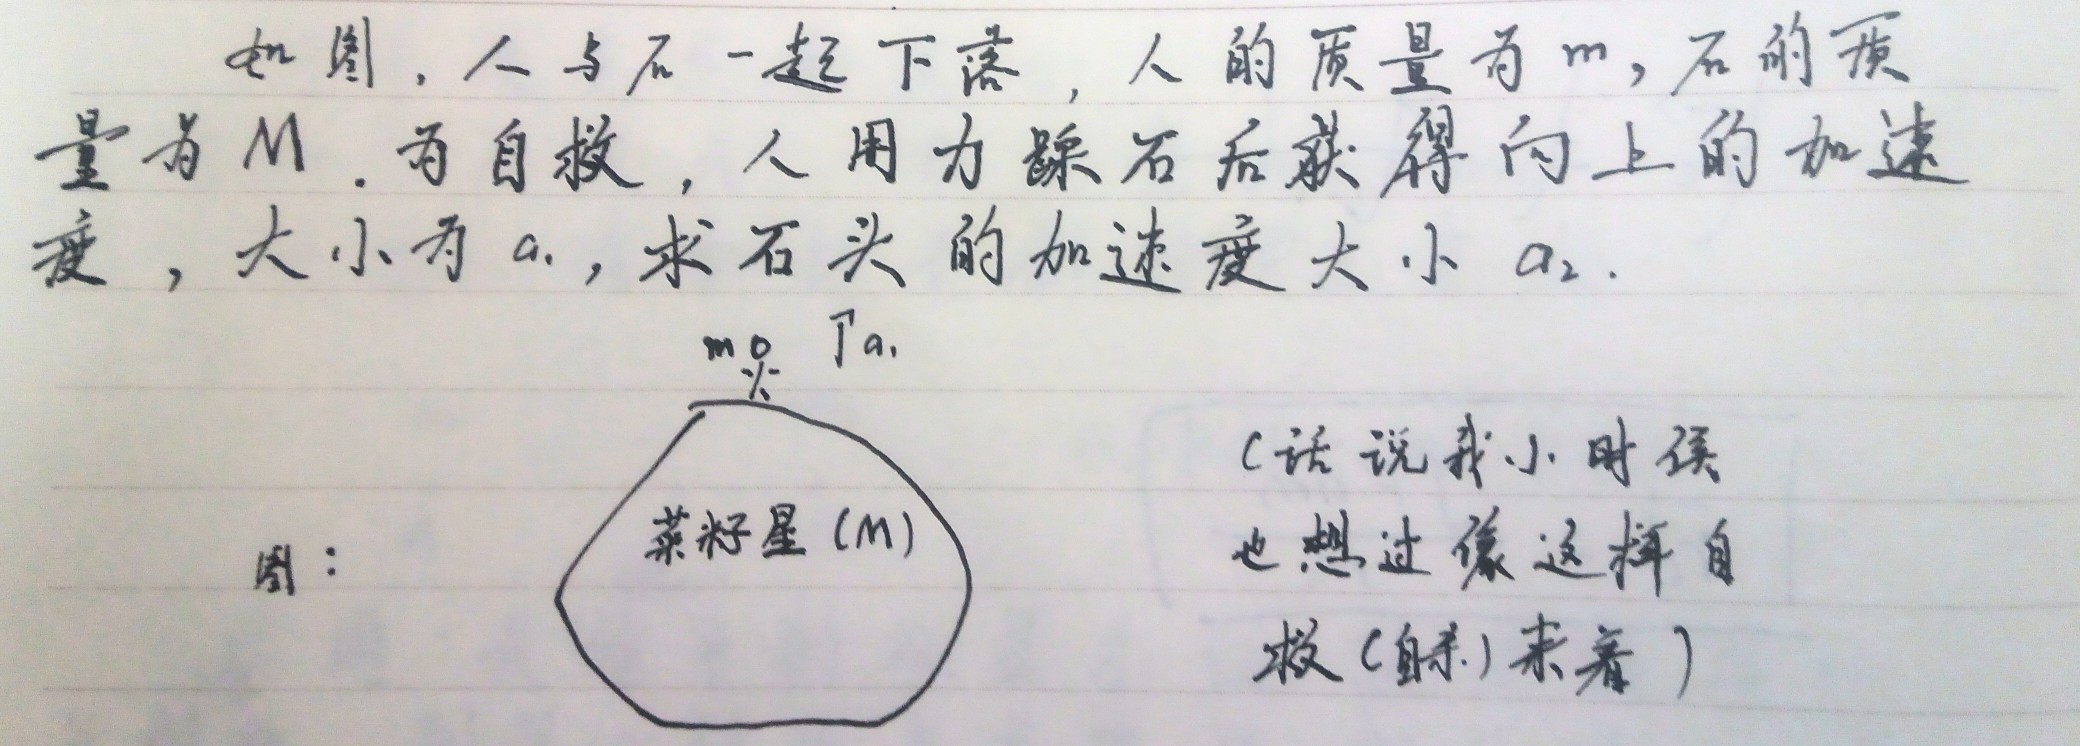 如图，人与石一起下落，人的质量为m，石的质
量为M．为自救，人用力踩石后获得向上的加速
度，大小为a₁，求石头的加速度大小a₂．
m ↑a₁
菜籽星(M)
图：
(话说我小时候
也想过像这样自
救(自杀)来着)